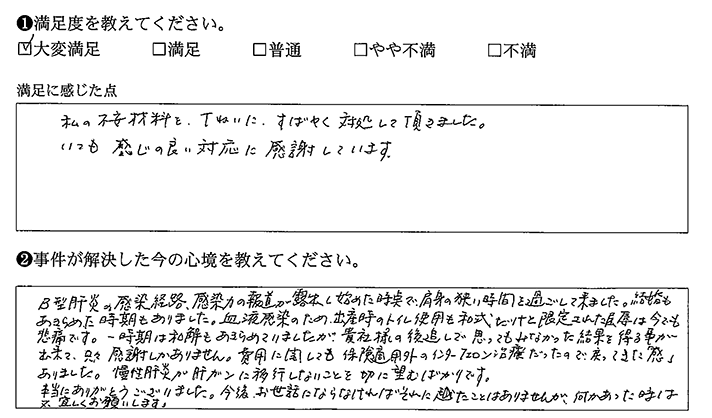 ❶満足度を教えてください。
☑大変満足 □満足 □普通 □やや不満 □不満
満足に感じた点
私の不安材料を、丁ねいに、すばやく対処して頂きました。
いつも感じの良い対応に感謝しています。
❷事件が解決した今の心境を教えてください。
B型肝炎の感染経路、感染力の報道が露出し始めた時点で、肩身の狭い時間を過ごして来ました。結婚も
あきらめた時期もありました。血液感染のため、出産時のトイレ使用も和式、だけと限定された屈辱は今でも
悲痛です。一時期は和解もあきらめていましたが、貴社様の後追しで思ってもみなかった結果を得る事が
出来て、只々感謝しかありません。費用に関しても保険適用外のインターフェロン治療だったので戻ってきた感」
ありました。慢性肝炎が肝ガンに移行しないことを切に望むばかりです。
本当にありがとうございました。今後、お世話にならなければそれに越たことはありませんが、何かあった時は
又、宜しくお願いします。